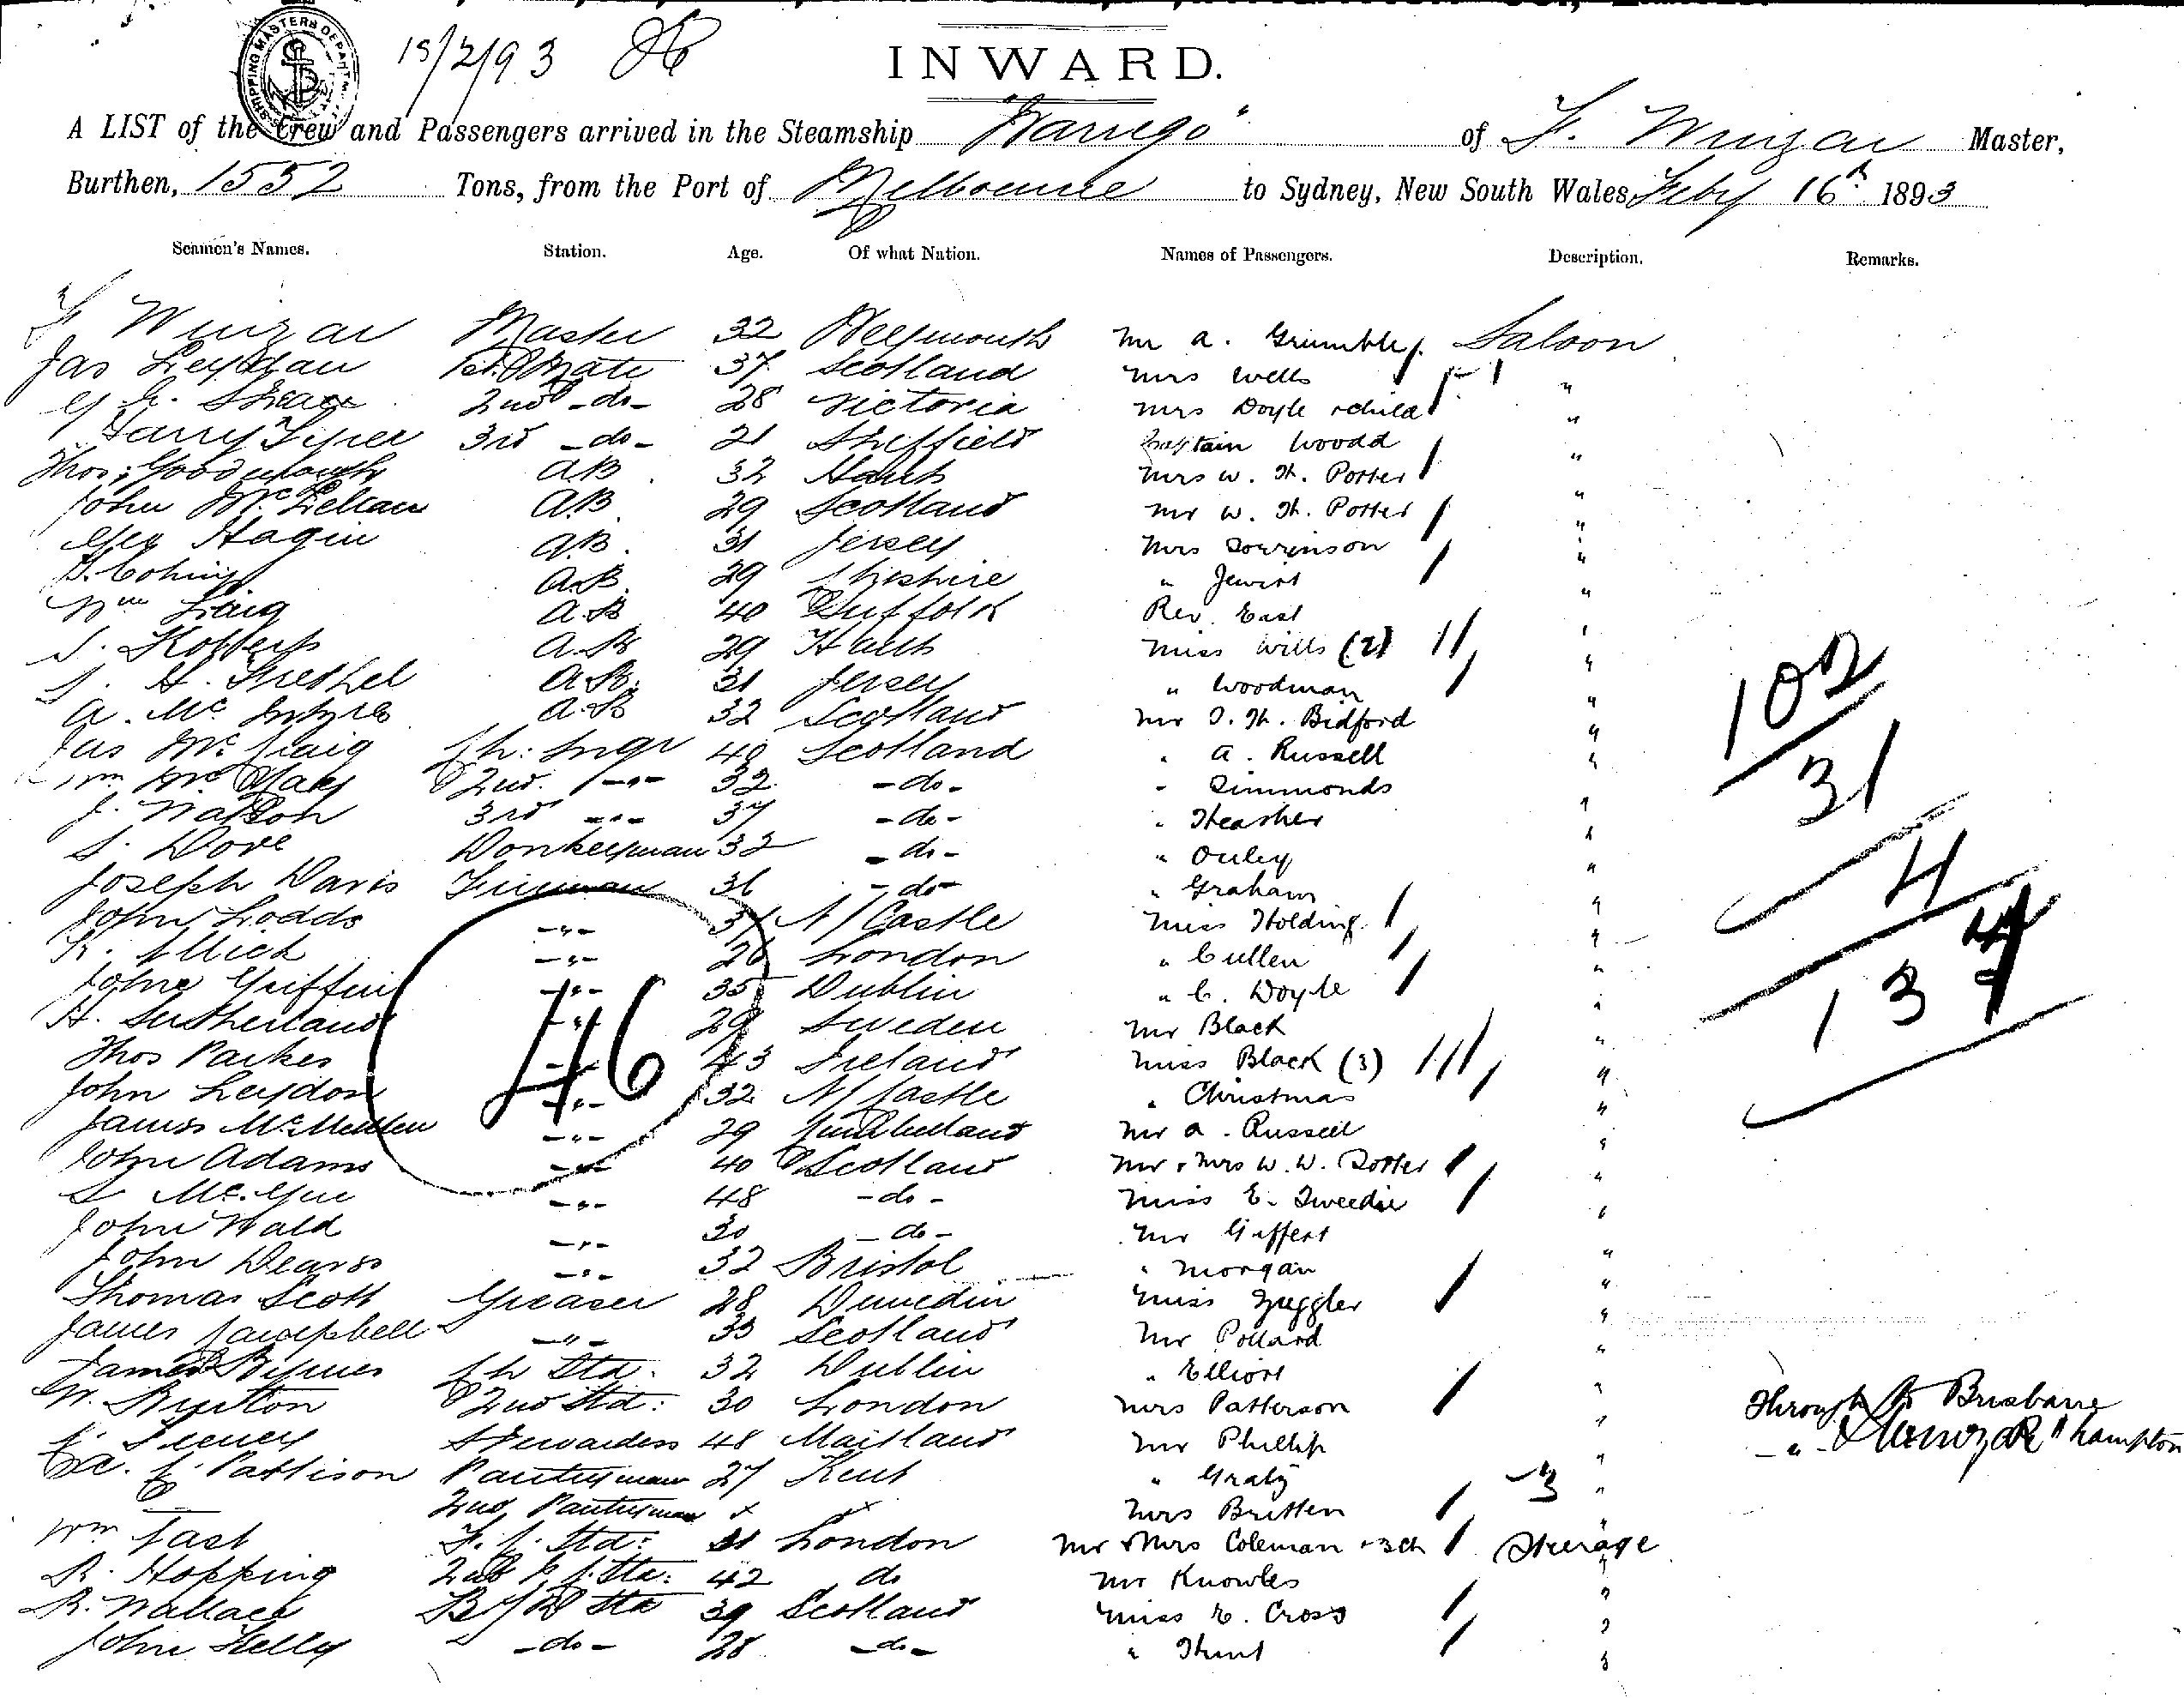 SHIPPING MASTERS DEPARTM
15/2/93
INWARD.
A LIST of the Crew and Passengers arrived in the Steamship "Warrego" of F. Winzar Master,
Burthen, 1552 Tons, from the Port of Melbourne to Sydney, New South Wales, Feby 16th 1893
Seamen's Names. Station. Age. Of what Nation. Names of Passengers. Description. Remarks.
F Winzar Master 32 Weymouth Mr A. Grimbley. Saloon
Jas Leydan 1st Mate 37 Scotland Mrs Wells "
2nd -do- 28 Victoria Mrs Doyle & child "
Harry 3rd -do- 21 Sheffield Captain Woodd "
Thos. A.B. 32 Hants Mrs W. H. Potter "
John McLellan A.B. 29 Scotland Mr W. H. Potter "
Geo Hagin A.B. 31 Jersey Mrs "
A.B. 29 " "
Wm Craig A.B. 40 Suffolk Rev. East "
J. Roberts A.B. 29 Hants Miss Wills (2) "
A.B. 31 Jersey " Woodman "
A. Mc Intyre A.B. 32 Scotland Mr J. H. Bidford "
Jas McCraig Ch: Engr 48 Scotland " A. Russell "
Wm 2nd -"- 32 -do- " Simmonds "
J. Watson 3rd -"- 37 -do- " Heather "
S. Dove Donkeyman 32 -do- " "
Joseph Davis Fireman 36 -do- " Graham "
John Dodds -"- 31 N/Castle Miss Holding "
-"- 26 London " Cullen "
John Griffin -"- 35 Dublin " C. Doyle "
H. Sutherland -"- 29 Sweden Mr Black "
Thos Parkes -"- 43 Ireland Miss Black (3) "
John Leydon -"- 32 N/Castle " Christmas "
James McMullen -"- 29 Cumberland Mr A. Russell "
John Adams -"- 40 Scotland Mr & Mrs W. W. Potter "
-"- 48 -do- Miss E. Tweedie "
John Wald -"- 30 -do- Mr Giffert "
John -"- 32 Bristol " Morgan "
Thomas Scott Greaser 28 Dunedin Miss "
James Campbell -"- 35 Scotland Mr Pollard "
James Ch Std. 32 Dublin " Elliott "
W. Burton 2nd Std: 30 London Mrs Patterson " Through to Brisbane
Stewardess 48 Maitland Mr Phillip " -"-
Pattison Pantryman 27 Kent " "
2nd Pantryman x x Mrs Britten "
Wm Cast F. C. Std: 21 London Mr & Mrs Coleman & 3 ch Steerage
R. Hopping 42 do Mr Knowles "
R. Wallace 39 Scotland Miss E. Cross "
John Kelly -do- 28 -do- " Hunt "
46
102
31
4
137